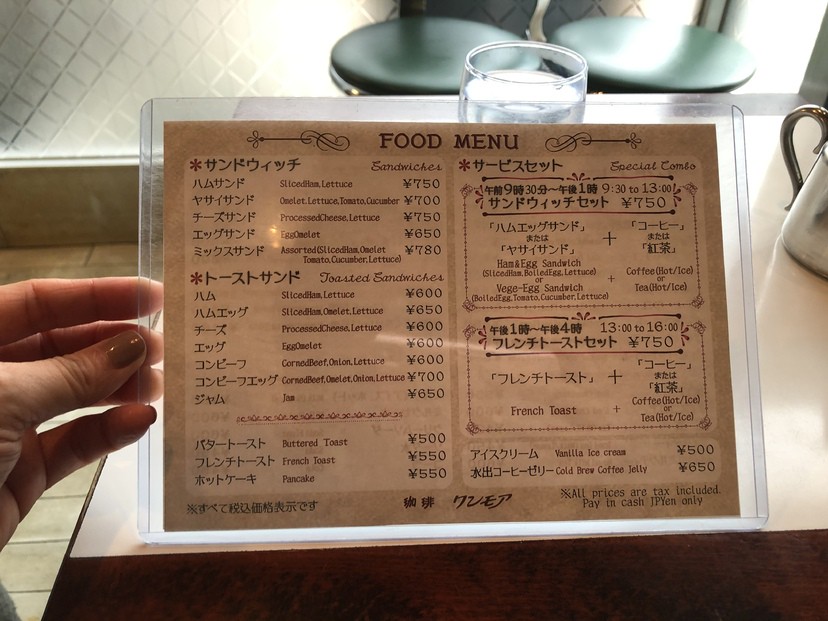 FOOD MENU
*サンドウィッチ Sandwiches
ハムサンド SlicedHam,Lettuce ¥750
ヤサイサンド Omelet,Lettuce,Tomato,Cucumber ¥700
チーズサンド ProcessedCheese,Lettuce ¥750
エッグサンド EggOmelet ¥650
ミックスサンド Assorted(SlicedHam,Omelet ¥780
Tomato,Cucumber,Lettuce)
*トーストサンド Toasted Sandwiches
ハム SlicedHam,Lettuce ¥600
ハムエッグ SlicedHam,Omelet,Lettuce ¥650
チーズ ProcessedCheese,Lettuce ¥600
エッグ EggOmelet ¥600
コンビーフ CornedBeef,Onion,Lettuce ¥600
コンビーフエッグ CornedBeef,Omelet,Onion,Lettuce ¥700
ジャム Jam ¥650
バタートースト Buttered Toast ¥500
フレンチトースト French Toast ¥550
ホットケーキ Pancake ¥550
※すべて税込価格表示です
*サービスセット Special Combo
午前9時30分〜午後1時 9:30 to 13:00
サンドウィッチセット ¥750
「ハムエッグサンド」 「コーヒー」
または + または
「ヤサイサンド」 「紅茶」
Ham&Egg Sandwich
(SlicedHam,BoiledEgg,Lettuce) Coffee(Hot/Ice)
or + or
Vege-Egg Sandwich Tea(Hot/Ice)
(BoiledEgg,Tomato,Cucumber,Lettuce)
午後1時〜午後4時 13:00 to 16:00
フレンチトーストセット ¥750
「コーヒー」
「フレンチトースト」 + または
「紅茶」
Coffee(Hot/Ice)
French Toast + or
Tea(Hot/Ice)
アイスクリーム Vanilla Ice cream ¥500
水出コーヒーゼリー Cold Brew Coffee Jelly ¥650
珈琲 ワンモア
※All prices are tax included.
Pay in cash JPYen only